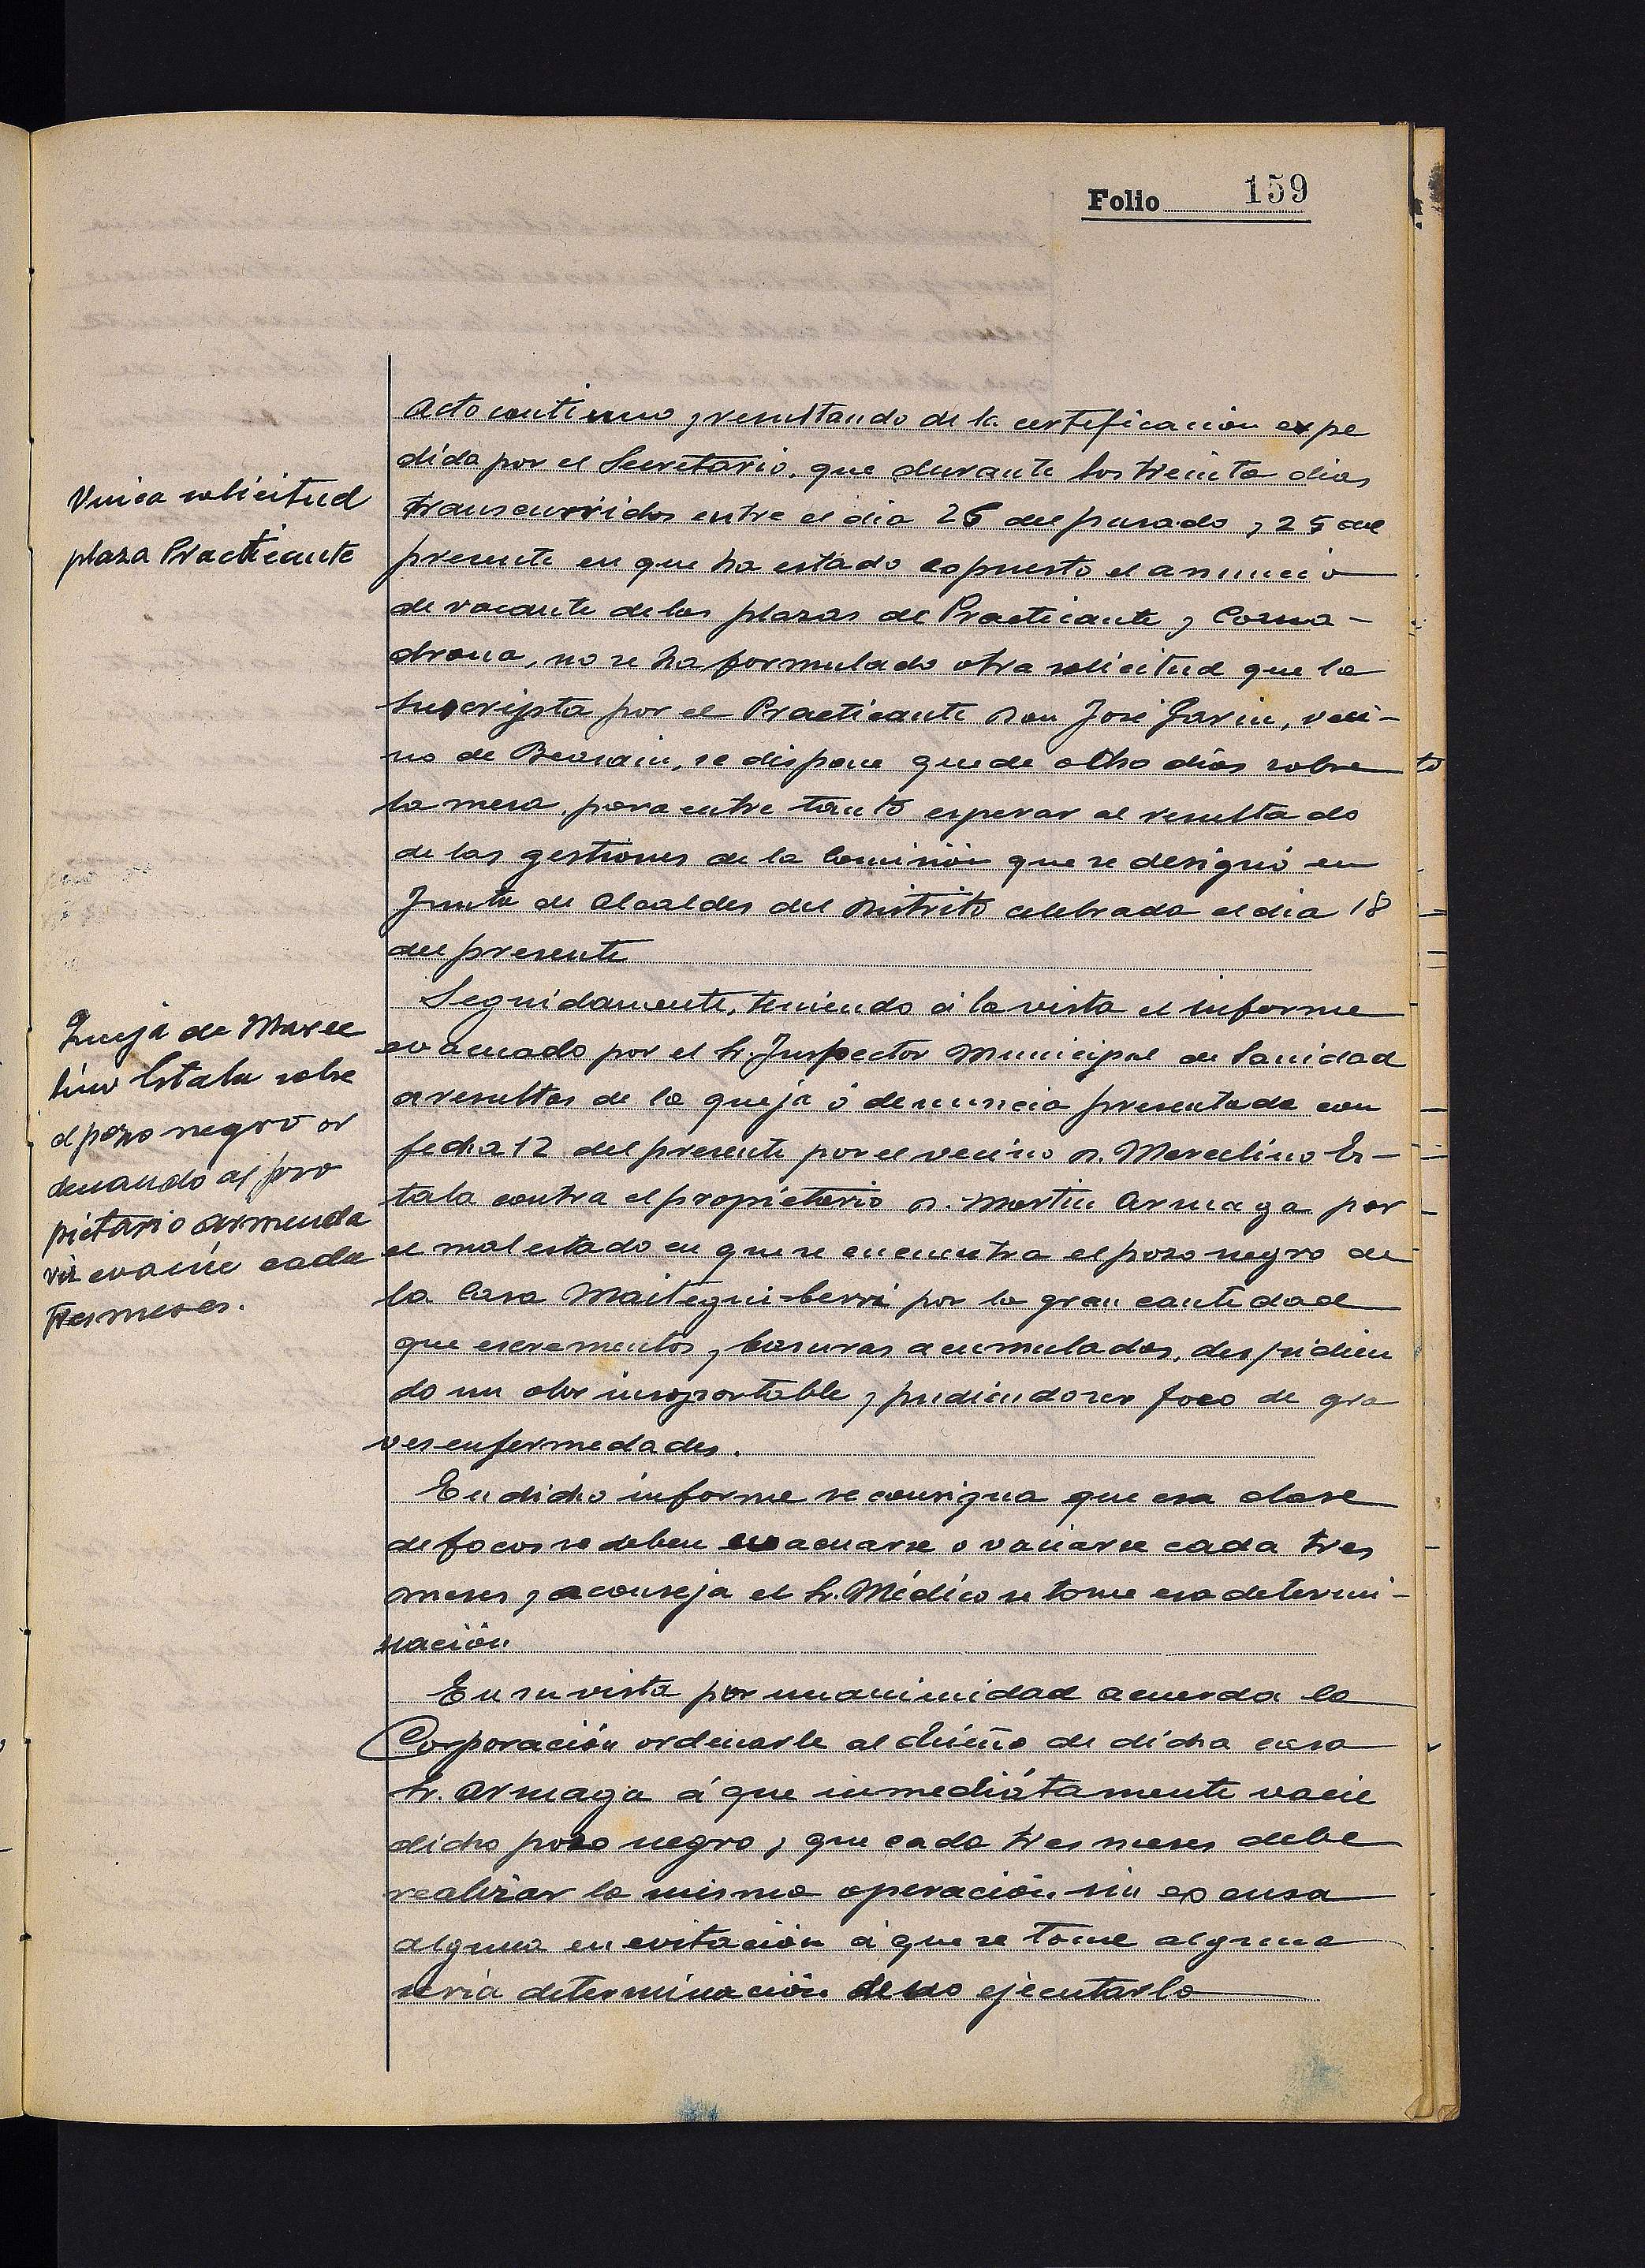 Folio 159
Acto continuo y resultando de la certificación expe
dida por el Secretario, que durante los treinta dias
Unica solicitud
transcurridos entre el dia 26 del pasado y 25 del
plaza Practicante
presente en que ha estado expuesto el anuncio
de vacante de las plazas de Practicante y Coma-
drona, no se ha formulado otra solicitud que la
suscripta por el Practicante don José Garin, veci-
no de Beasain, se dispone quede ocho días sobre
la mesa, para entre tanto esperar al resultado
de las gestiones de la Comisión que se designó en
Junta de Alcaldes del Distrito celebrada el dia 18
del presente
Seguidamente, teniendo á la vista el informe
evacuado por el Sr. Inspector Municipal de Sanidad
a resultas de la queja ó denuncia presentada con
fecha 12 del presente por el vecino D. Marcelino Es-
tala contra el propietario D. Martin Armaga por
el mal estado en que se encuentra el pozo negro de
la Casa Maitegui-berri por la gran cantidad
que escrementos y basuras acumulados, despidien
do un olor insoportable y pudiendo ser foco de gra
ves enfermedades.
Queja de Marce
lino Estala sobre
el pozo negro or
denando al pro
pietario Armenda
riz evacúe cada
tres meses.
En dicho informe se consigna que esa clase
de focos se deben evacuarse o vaciarse cada tres
meses y aconseja el Sr. Médico se tome esa determi-
nación
En su vista por unanimidad acuerda la
Corporación ordenarle al dueño de dicha casa
Sr. Armaga á que inmediátamente vacie
dicho pozo negro y que cada tres meses debe
realizar la misma operación sin excusa
alguna en evitación á que se tome alguna
seria determinación de no ejecutarlo